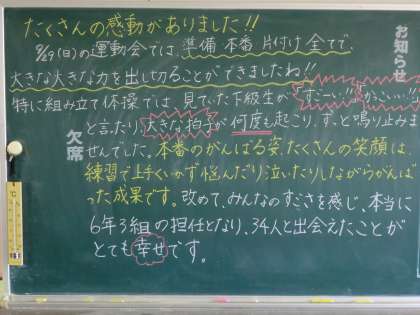 たくさんの感動がありました!!
8/29(日)の運動会では、準備 本番 片付け 全てで、
大きな大きな力を出し切ることができましたね!!
特に組み立て体操では、見ていた下級生が すごーい!! かっこいい!!
と言ったり、大きな拍手が何度も起こり、ずっと鳴り止みま
せんでした。本番のがんばる姿、たくさんの笑顔は、
練習で上手くいかず悩んだり泣いたりしながらがんば
った成果です。改めて、みんなのすごさを感じ、本当に
6年3組の担任となり、34人と出会えたことが
とても幸せです。
お知らせ
欠席
℃